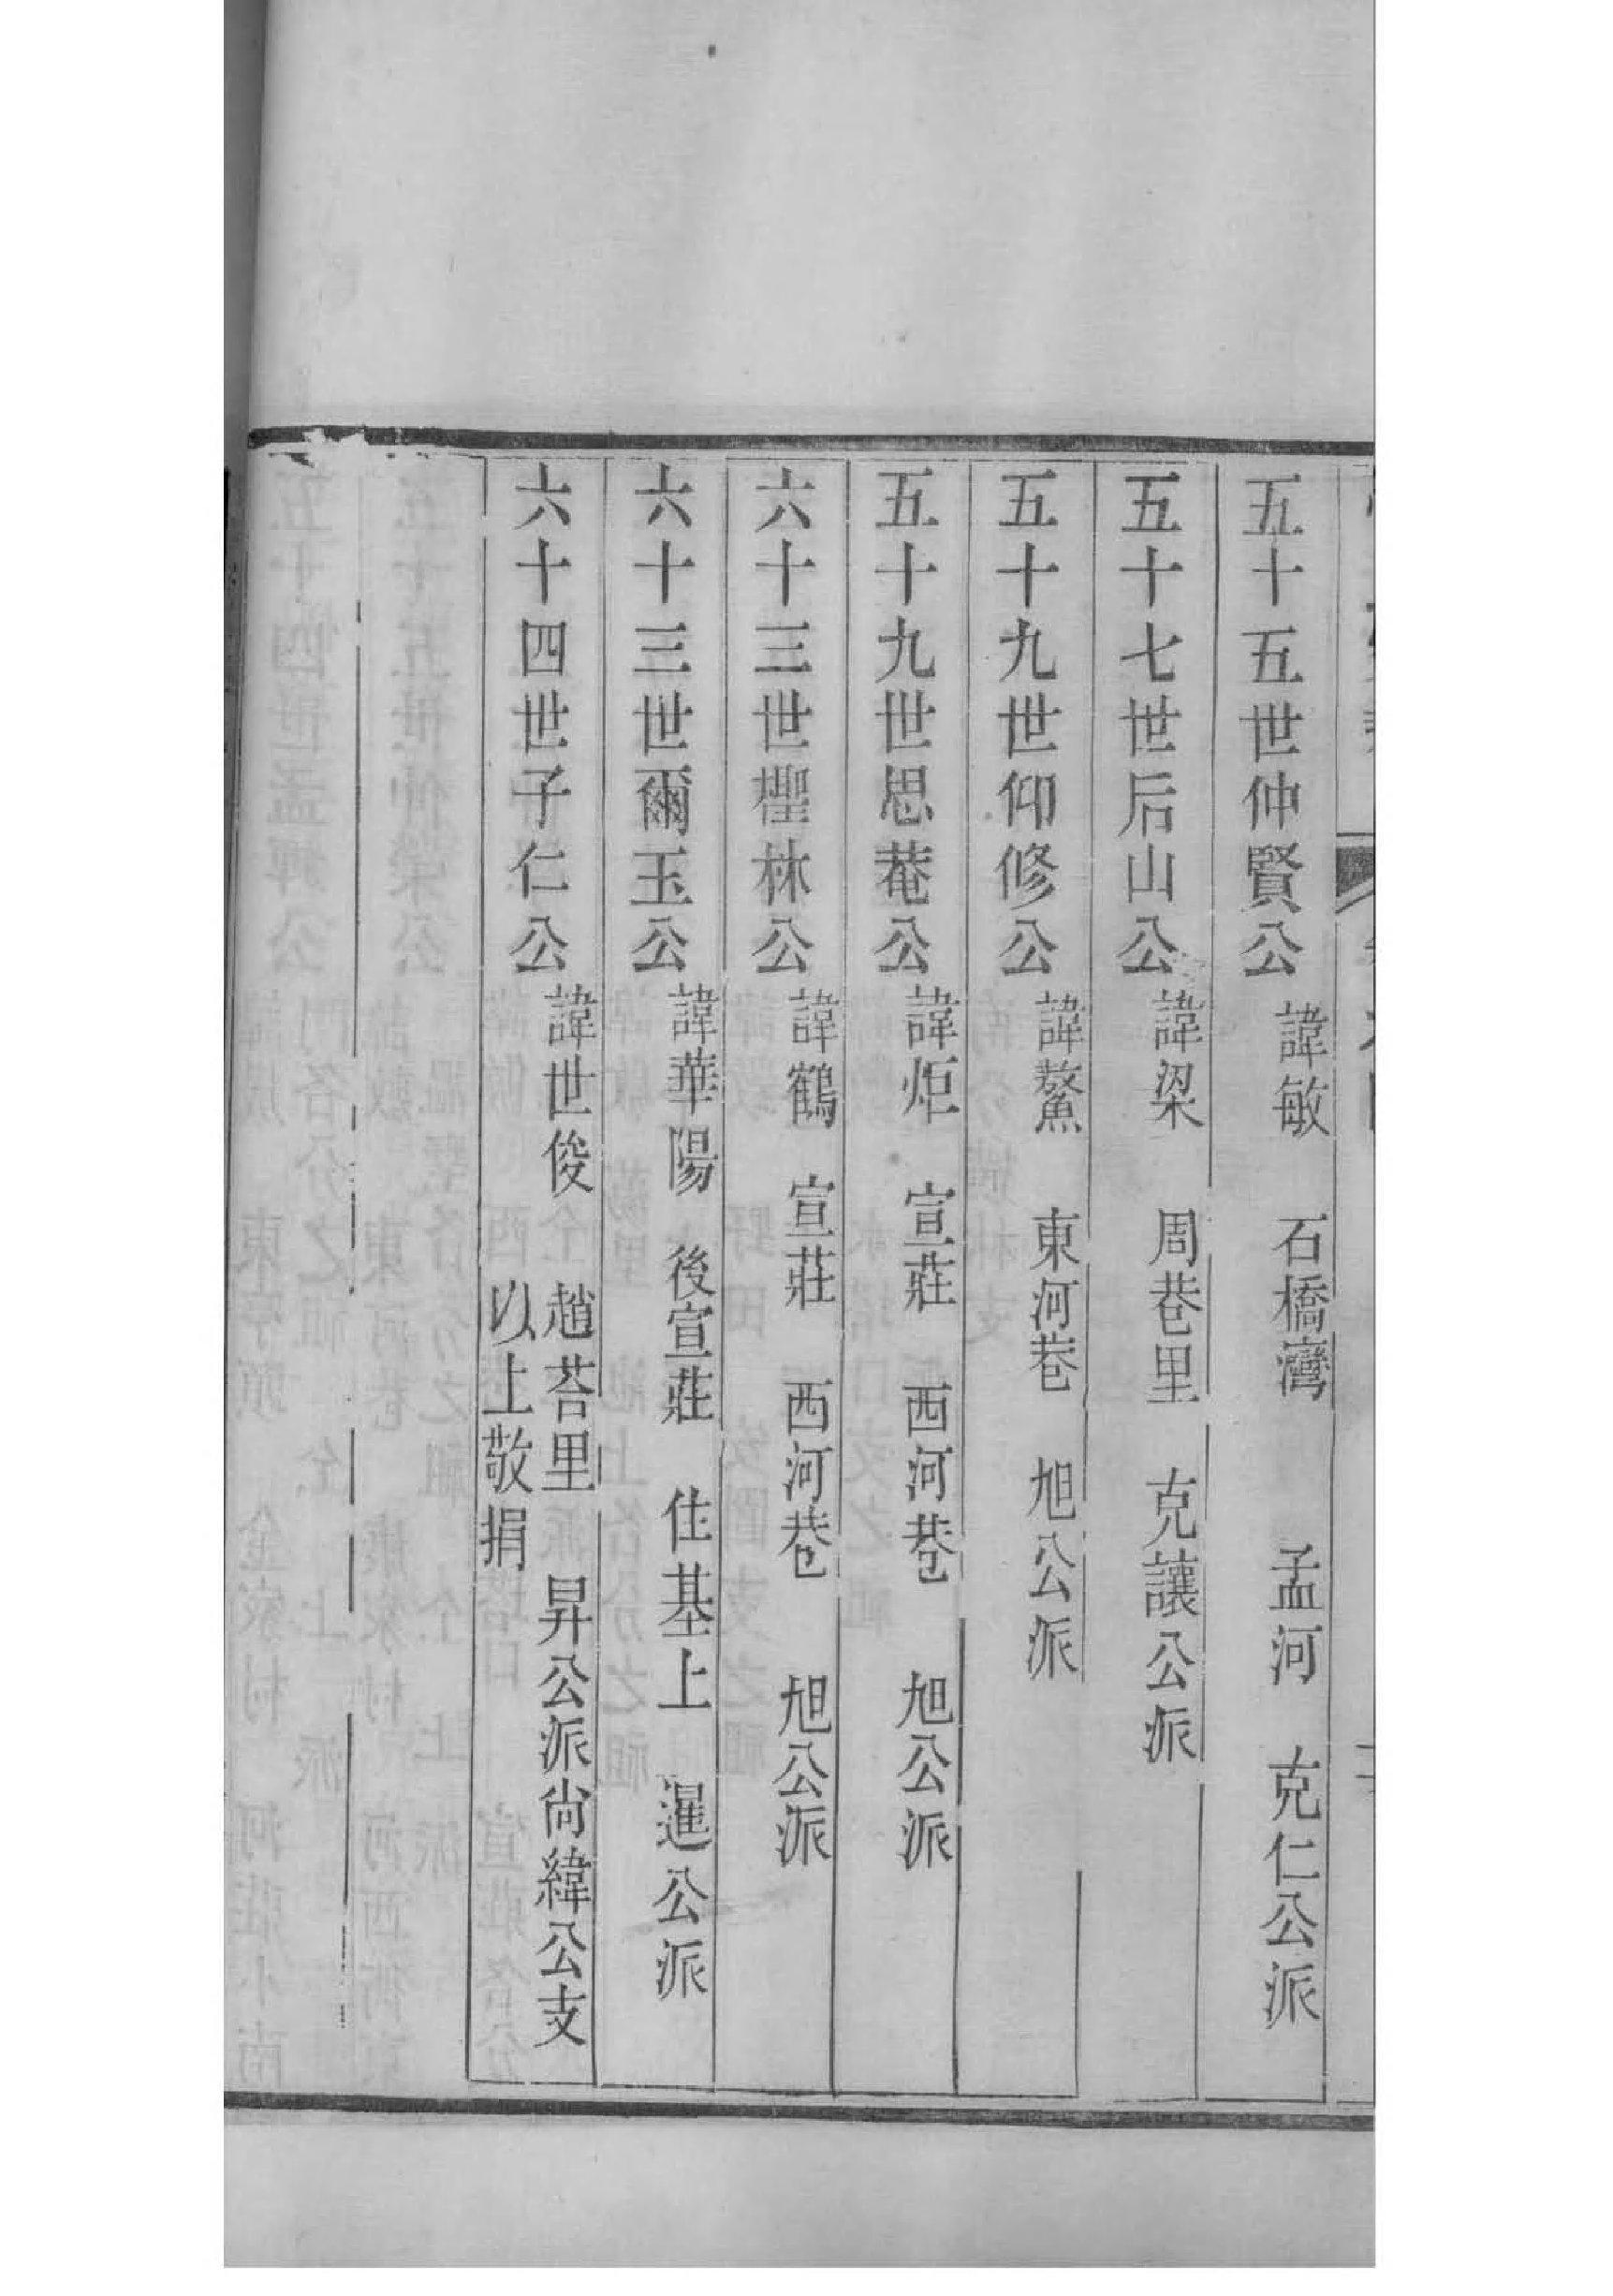 五十五世仲賢公 諱敏 石橋灣 孟河 克仁公派
五十七世后山公 諱梁 周巷里 克讓公派
五十九世仰修公 諱鰲 東河巷 旭公派
五十九世思菴公 諱炬 宣莊 西河巷 旭公派
六十三世檉林公 諱鶴 宣莊 西河巷 旭公派
六十三世爾玉公 諱華陽 後宣莊 住基上 暹公派
六十四世子仁公 諱世俊 趙荅里 昇公派尚緯公支
以上敬捐